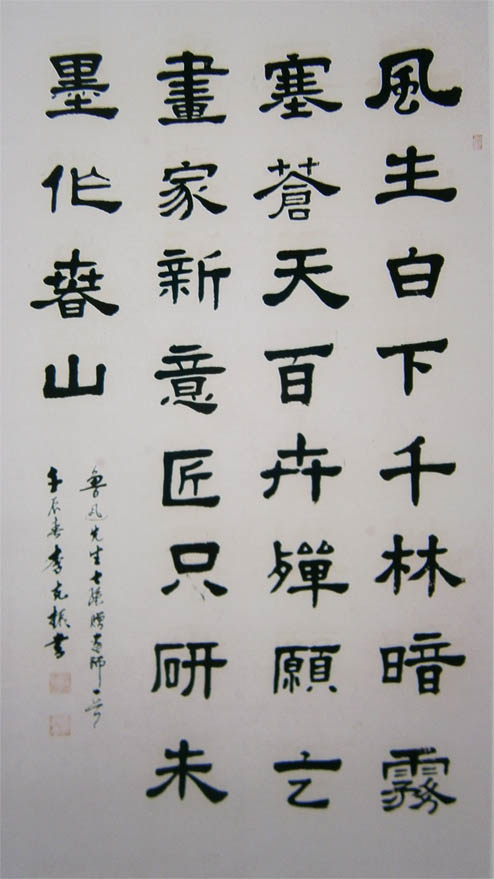 風生白下千林暗霧
塞蒼天百卉殫願乞
畫家新意匠只研朱
墨作春山
魯迅先生七絕贈畫師一首
壬辰春李克振書